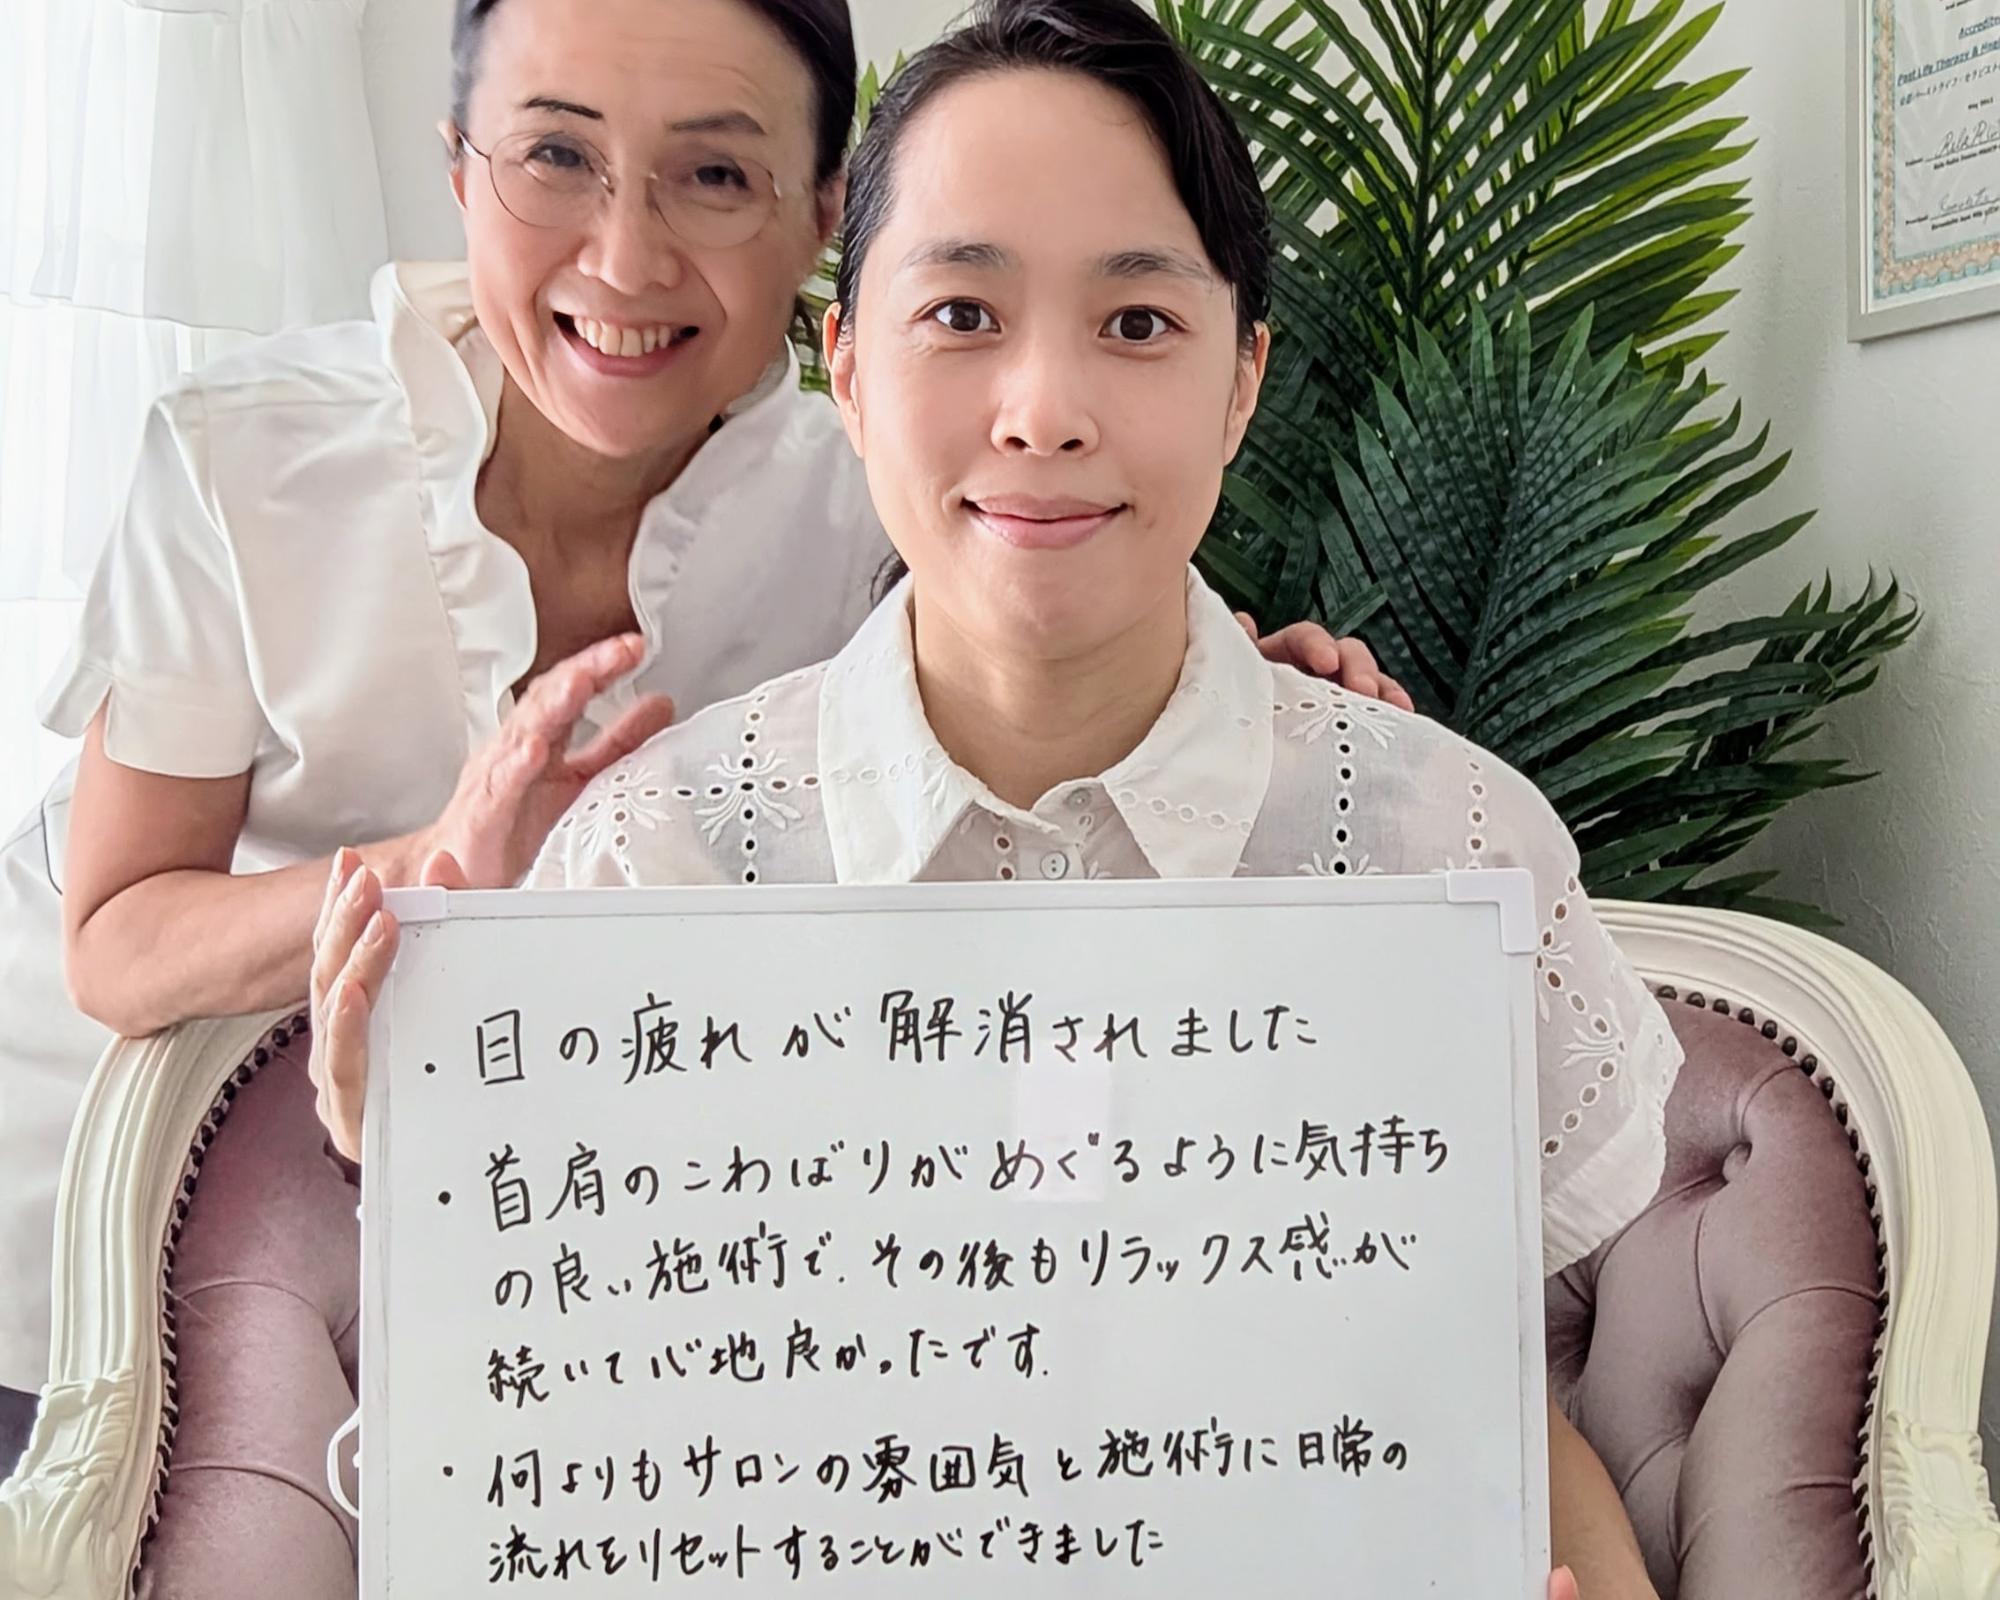 Accredite
Past Life Therapy & Hea
May 2011
・目の疲れが解消されました
・首肩のこわばりがめぐるように気持ち
の良い施術で、その後もリラックス感が
続いて心地良かったです。
・何よりもサロンの雰囲気と施術に日常の
流れをリセットすることができました